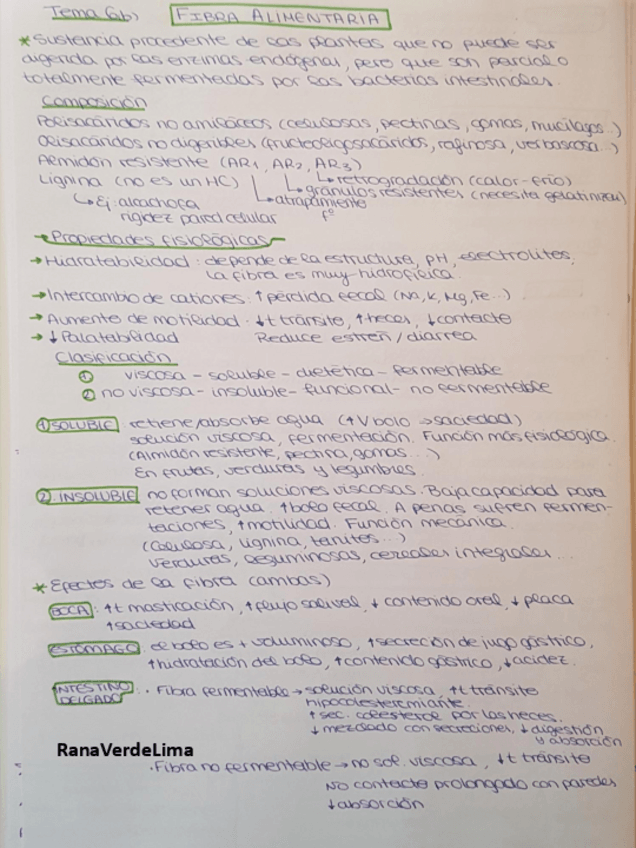 Tema 6b) FIBRA ALIMENTARIA
* Sustancia procedente de las plantes que no puede ser
digerida por las enzimas endógenas, pero que son parcial o
totalmente fermentadas por las bacterias intestinales.
Composición
Polisacáridos no amiláceos (celulosas, pectinas, gomas, mucílagos...)
Olisacáridos no digeribles (fructooligosacáridos, rafinosa, verbascosa...)
Almidón resistente (AR1, AR2, AR3)
↳ retrogradación (calor-frío)
Lignina (no es un HC) ↳ gránulos resistentes (necesita gelatinizar)
↳ Ej: alcachofa ↳ atrapamiento
rigidez pared celular fº
Propiedades fisiológicas
→ Hidratabilidad: depende de la estructura, pH, electrolitos.
La fibra es muy hidrofílica.
→ Intercambio de cationes: ↑ pérdida fecal (Na, K, Mg, Fe...)
→ Aumento de motilidad: ↓t tránsito, ↑heces, ↓contacto
→ ↓Palatabilidad Reduce estreñ/diarrea
Clasificación
① viscosa - soluble - dietética - fermentable
② no viscosa - insoluble - funcional - no fermentable
① SOLUBLE retiene/absorbe agua (↑V bolo → saciedad)
solución viscosa, fermentación. Función más fisiológica.
(Almidón resistente, pectina, gomas...)
En frutas, verduras y legumbres.
② INSOLUBLE no forman soluciones viscosas. Baja capacidad para
retener agua. ↑bolo fecal. A penas sufren fermen-
taciones, ↑motilidad. Función mecánica.
(Celulosa, lignina, tanitos...)
Verduras, leguminosas, cereales integrales...
* Efectos de la fibra (ambas)
BOCA: ↑t masticación, ↑flujo salival, ↓ contenido oral, ↓ placa
↑saciedad
ESTÓMAGO: el bolo es + voluminoso, ↑secreción de jugo gástrico,
↑hidratación del bolo, ↑contenido gástrico, ↓acidez.
INTESTINO DELGADO: · Fibra fermentable → solución viscosa, ↑t tránsito
hipocolesteremiante.
↑ sec. colesterol por las heces.
↓ mezclado con secreciones, ↓digestión
y absorción
RanaVerdeLima
· Fibra no fermentable → no sol. viscosa, ↓t tránsito
No contacto prolongado con paredes
↓absorción